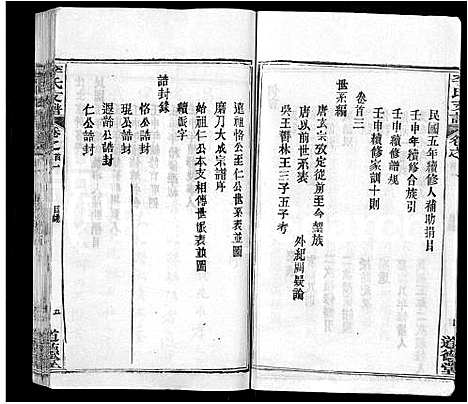 民國五年續修人補助捐目
壬申年續修合族引
壬申續修譜規
壬申續修家訓十則
卷首二
世系編
唐太宗攷定從前至今望族
外紀闕疑論
吳王晉林王三子五子考
遠祖恪公至仁公世系表並圖
磨刀大成宗譜序
始祖仁公本支相傳世系表並圖
續派字
誥封錄
恪公誥封
琨公誥封
遐諦公誥封
仁公誥封
李氏支譜
卷之首一
目錄
五
道德堂
道德堂